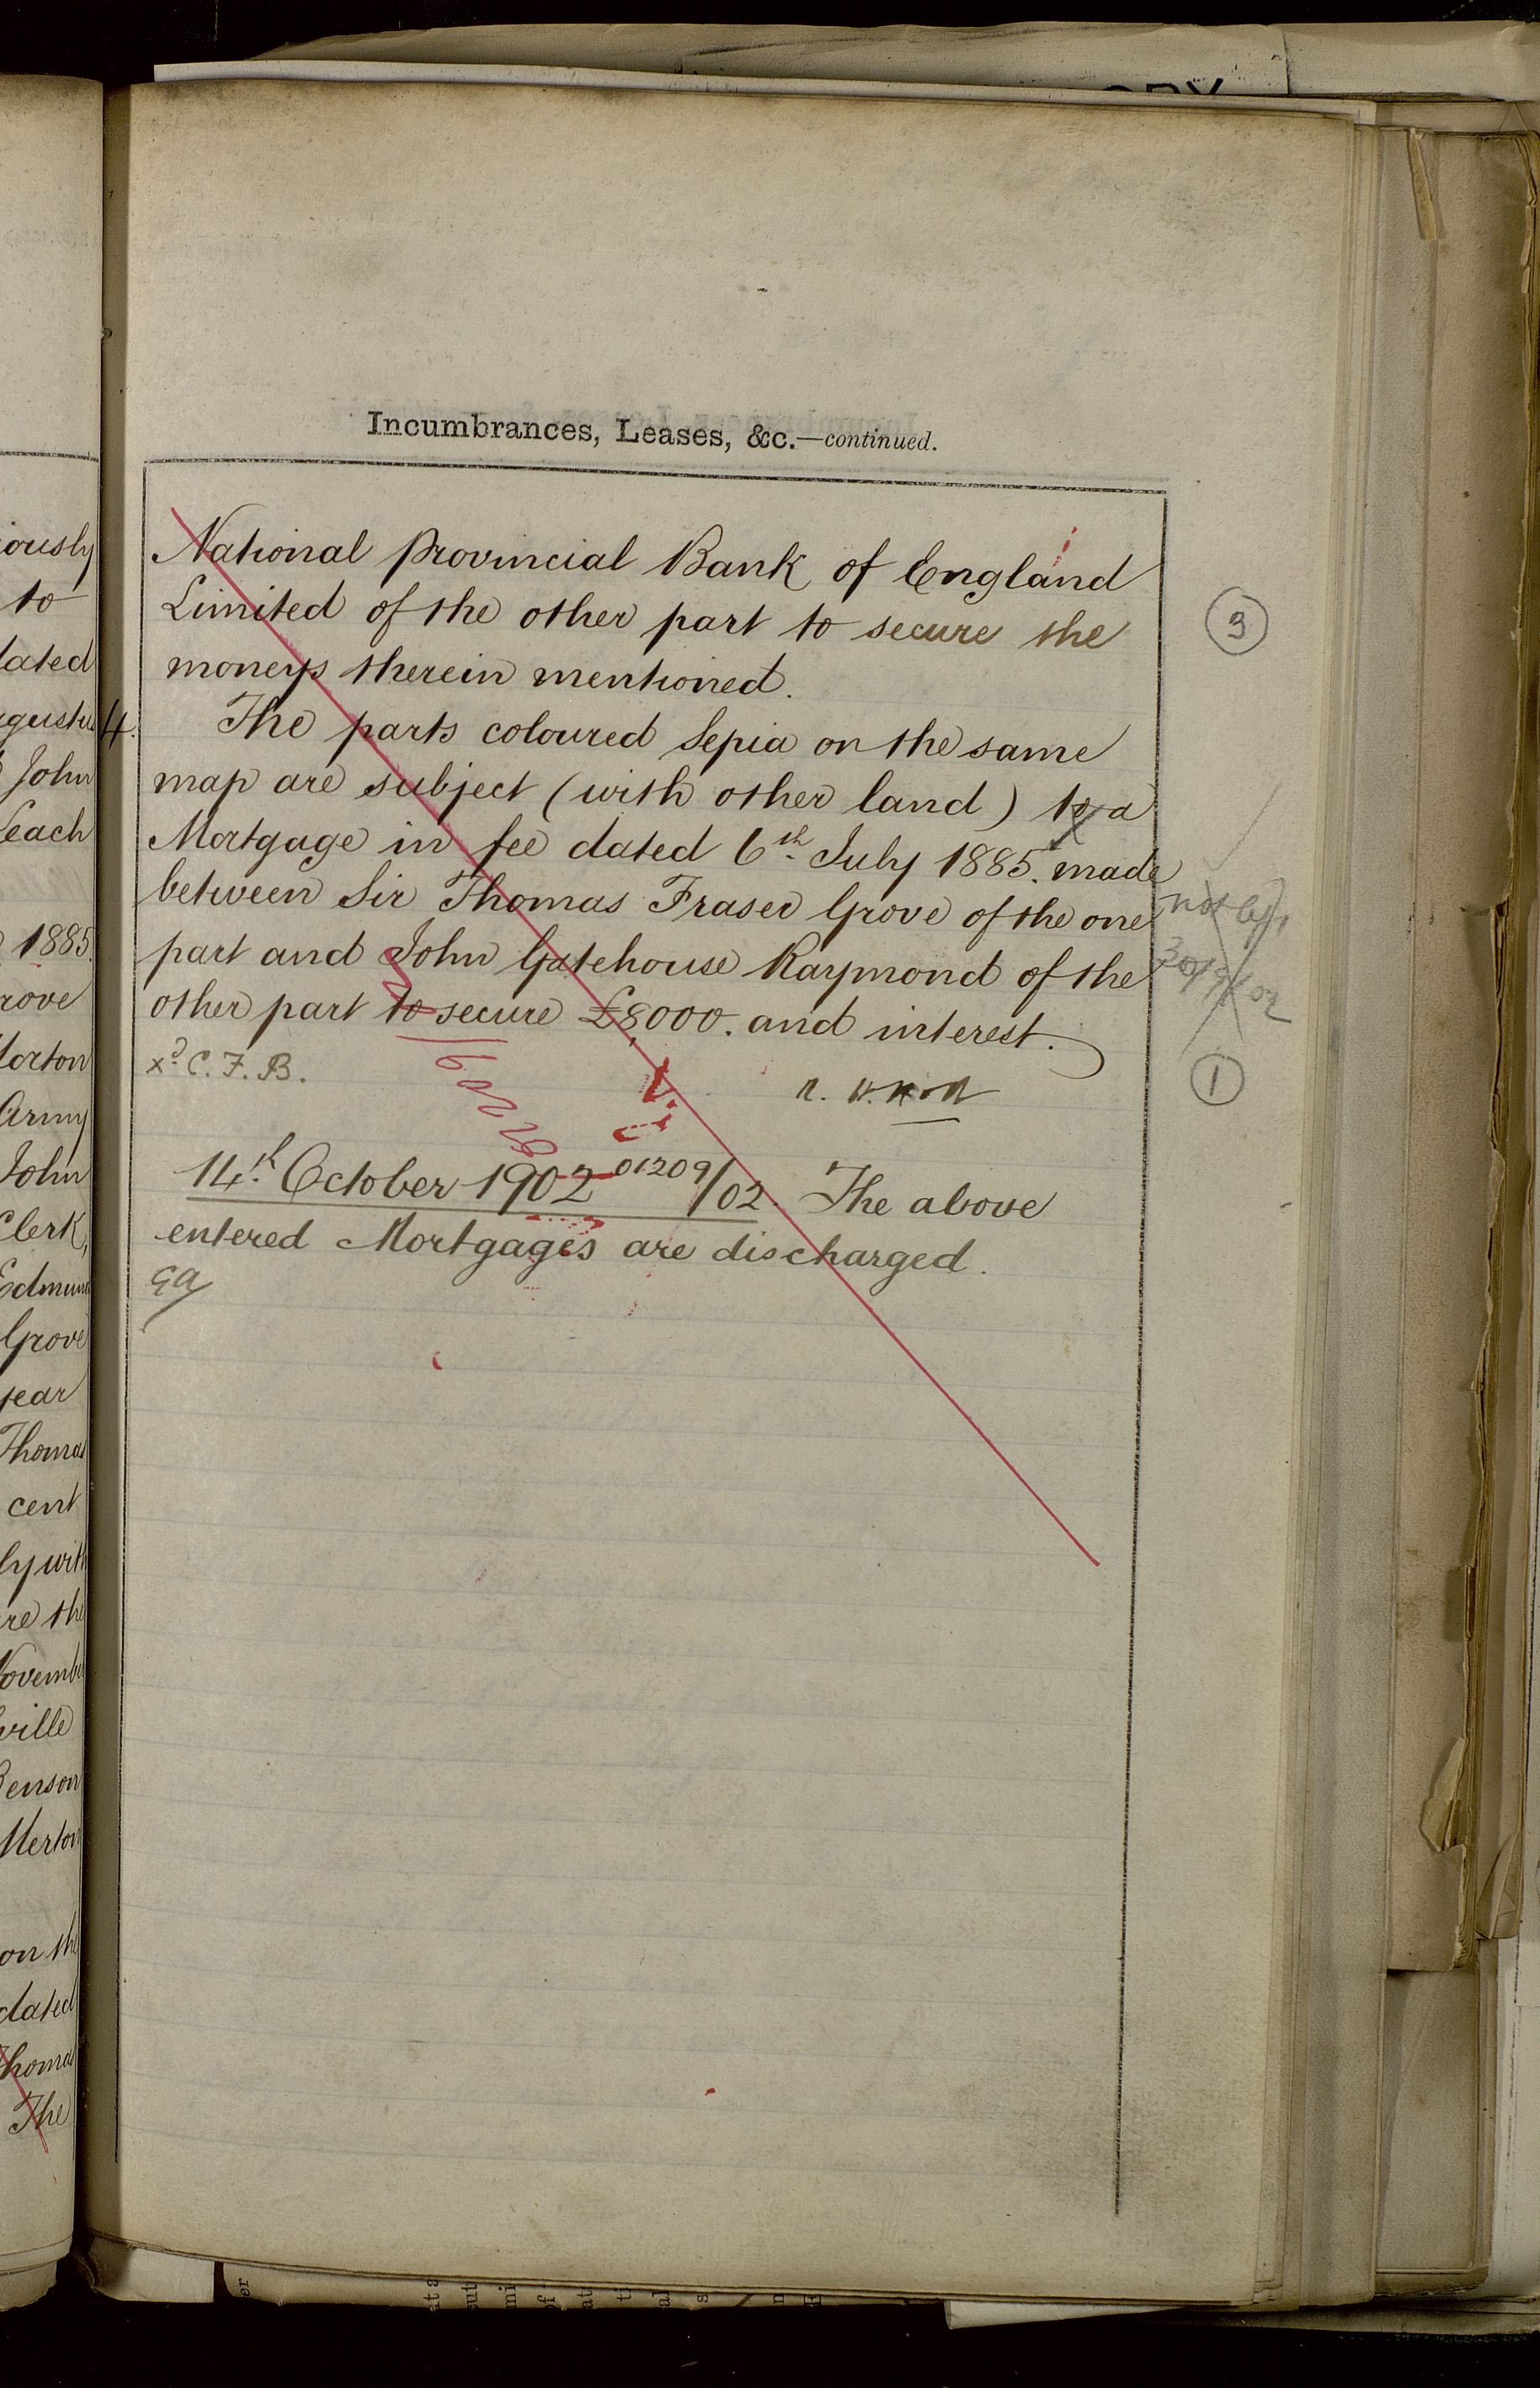 Incumbrances, Leases, &c.—continued.
National Provincial Bank of England
Limited of the other part to secure the
moneys therein mentioned.
4. The parts coloured Sepia on the same
map are subject (with other land) to a
Mortgage in fee dated 6th July 1885. made
between Sir Thomas Fraser Grove of the one
part and John Gatehouse Raymond of the
other part to secure £8,000. and interest.
xd C. F. B.
14th October 1902 01209/02. The above
entered Mortgages are discharged.
EA
3
1
iously
to
dated
John
Leach
1885.
rove
Army
John
Clerk,
Edmund
Grove
year
Thomas
cent
ly with
re the
ville
Benson
Merton
on the
dated
Thomas
The